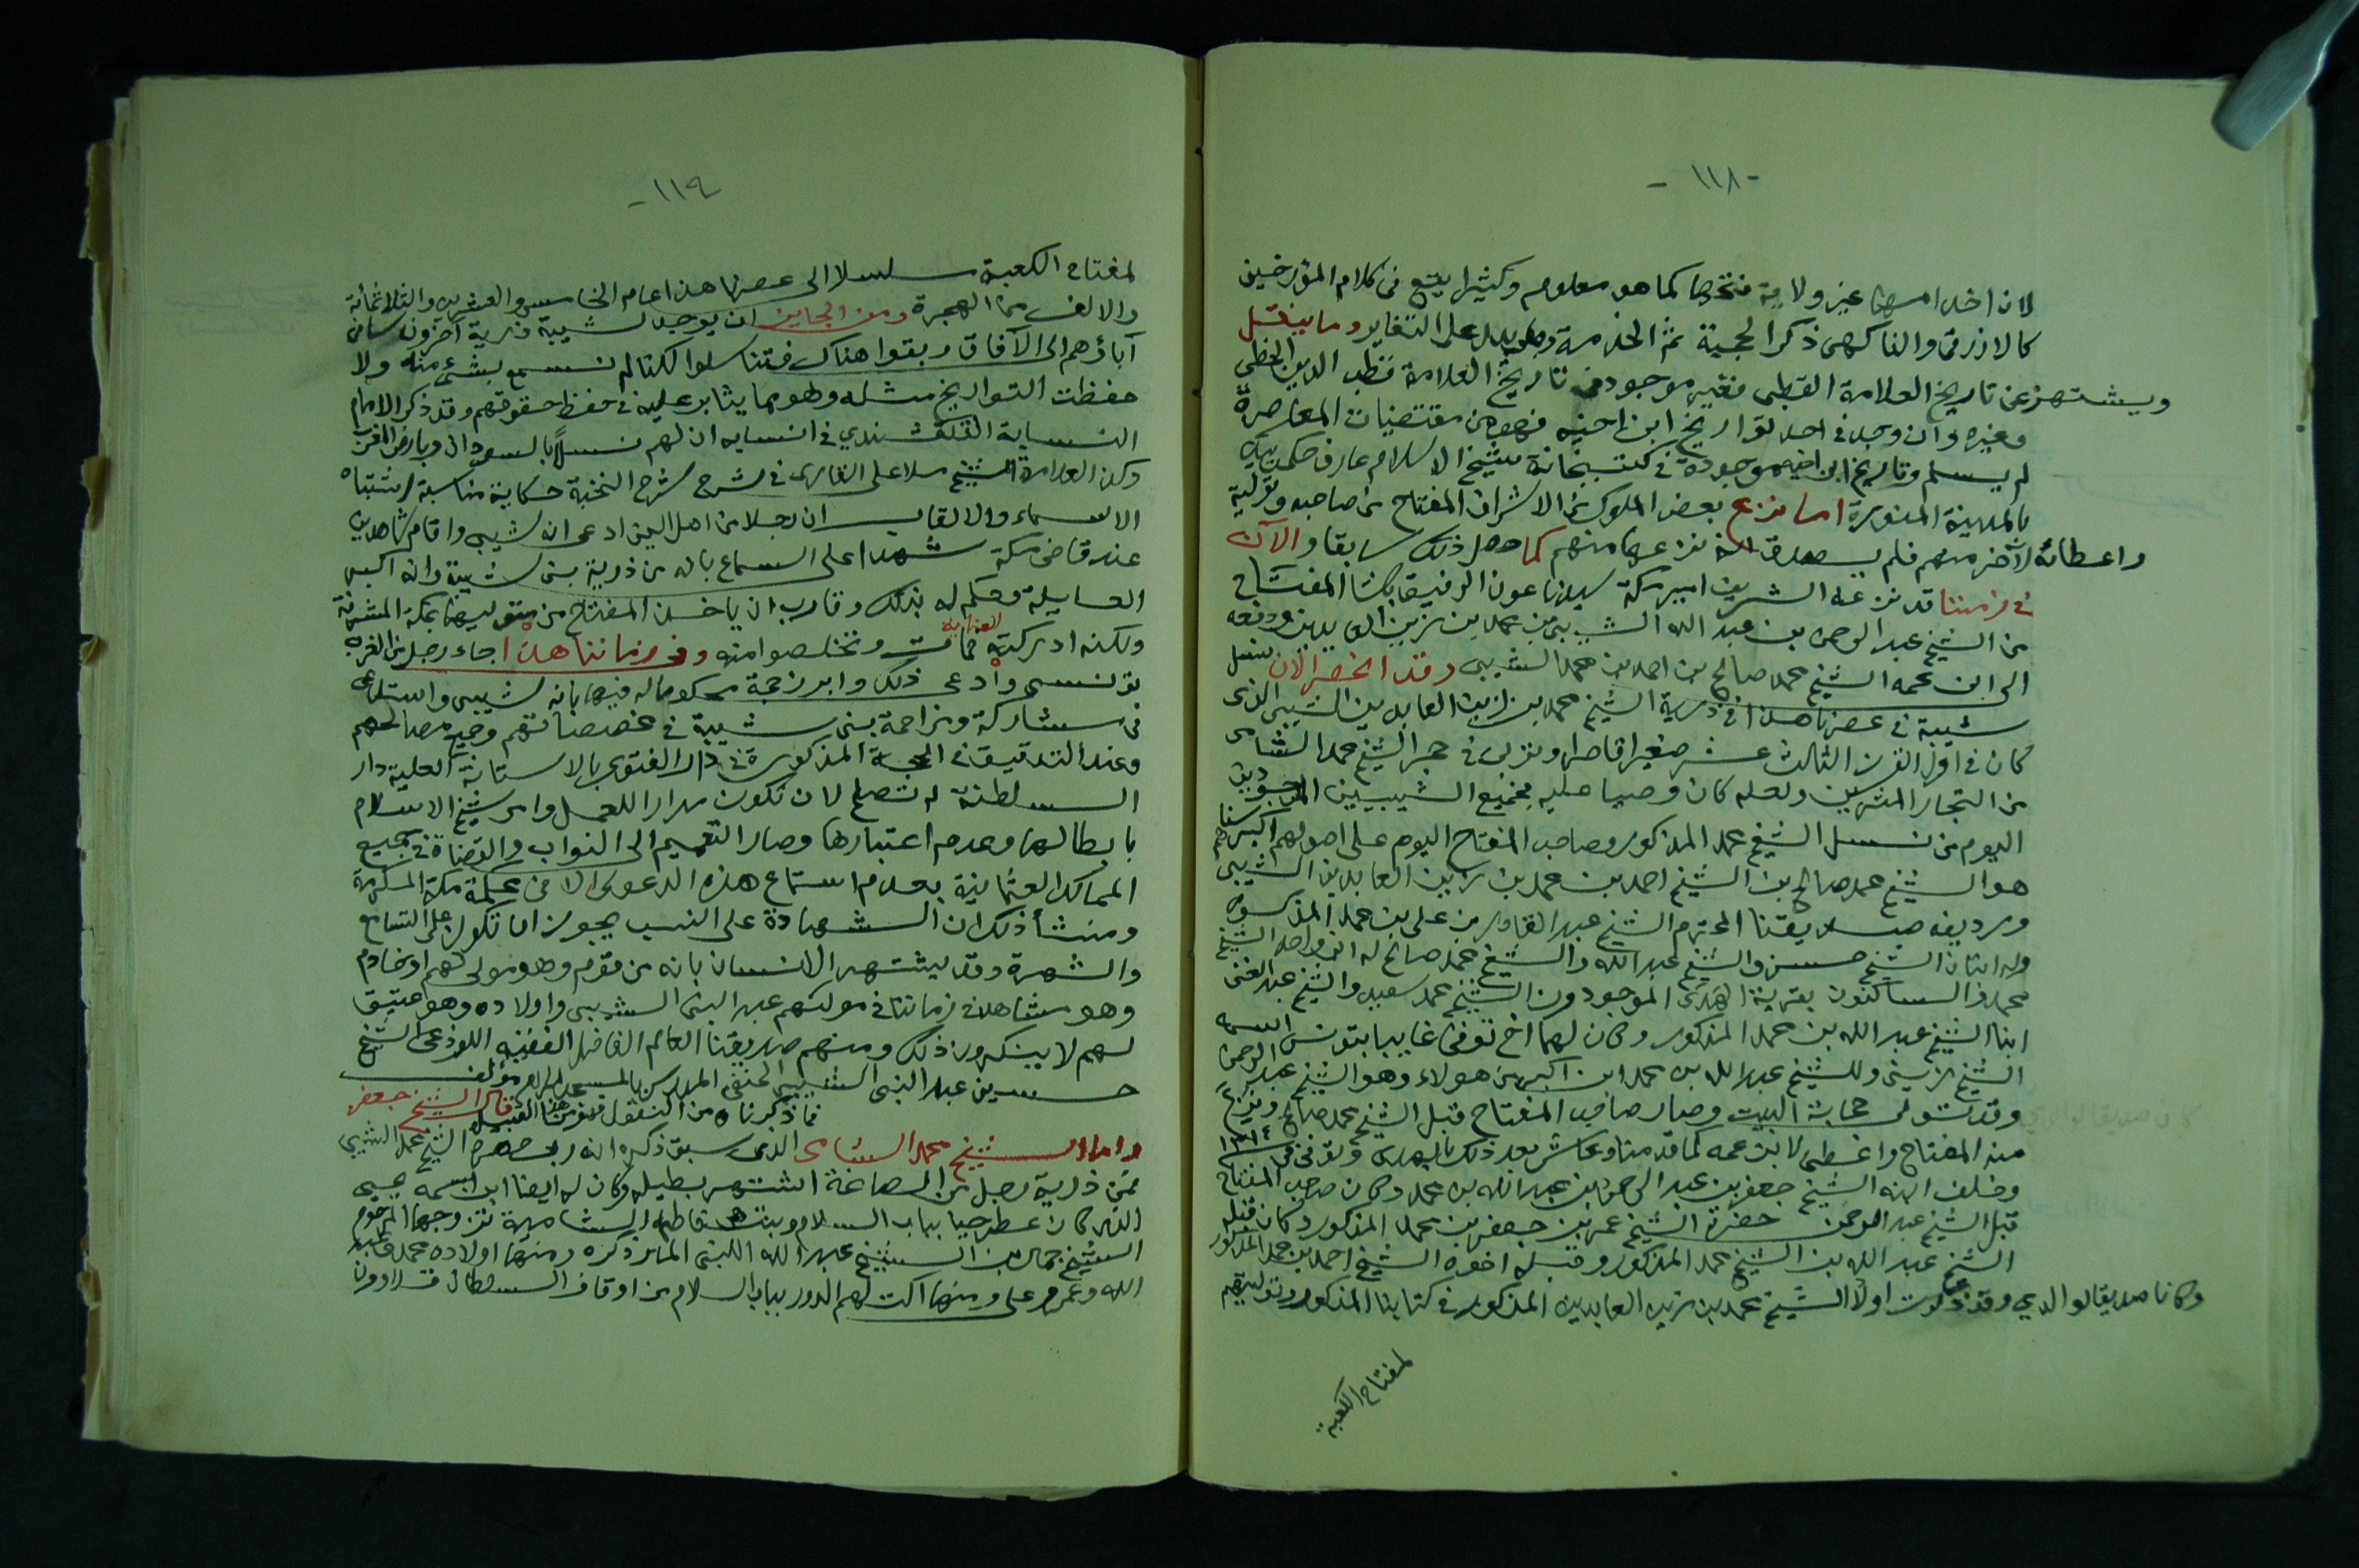 - ١١٨ -
لان اخدامها غير ولاية فتحها كما هو معلوم وكثيرا يقع في كلام المؤرخين
كالازرقي والفاكهي ذكر الحجبة ثم الخدمة وهل يدل على التغاير وما ينقل
ويشتهر عن تاريخ العلامة القطبي فغير موجود في تاريخ العلامة قطب الدين الحنفي
وغيره وان وجد في احد تواريخ ابن اخيه فهو من مقتضيات المعاصرة
لم يسلم وتاريخ ابن اخيه موجودة في كتبخانة شيخ الاسلام عارف حكمت بيك
بالمدينة المنورة اما نزع بعض الملوك او الاشراف المفتاح من صاحبه وتولية
واعطائه لآخر منهم فلم يصدق انه نزعها منهم كما حصل ذلك سابقا والآن
في زمننا قد نزعه الشريف امير مكة سيدنا عون الرفيق باشا المفتاح
من الشيخ عبد الرحمن بن عبد الله الشيبي بن محمد بن زين العابدين ودفعه
الى ابن عمه الشيخ محمد صالح بن احمد بن محمد الشيبي وقد انحصر الان نسل
شيبة في عصرنا هذا في ذرية الشيخ محمد بن زين العابدين الشيبي الذي
كان في اول القرن الثالث عشر صغيرا قاصرا وتربى في حجر الشيخ محمد الشامي
من التجار المثريين ولعله كان وصيا عليه فجميع الشيبيين الموجودين
اليوم من نسل الشيخ محمد المذكور وصاحب المفتاح اليوم على اصولهم اكبرهم سنا
هو الشيخ محمد صالح بن الشيخ احمد بن محمد بن زين العابدين الشيبي
ورديفه صديقنا المحترم الشيخ عبد القادر بن علي بن محمد المذكور
وله ابنان الشيخ حسن والشيخ عبد الله والشيخ محمد صالح له ابن واحد الشيخ
محمد والساكنون بقرية الهدى الموجودون الشيخ محمد سعيد والشيخ عبد الغني
ابنا الشيخ عبد الله بن محمد المذكور وكان لهما اخ توفى غايبا بتونس اسمه
الشيخ زيني وللشيخ عبد الله بن محمد ابن اكبر من هولاء وهو الشيخ عبد الرحمن
وقد تولى حجابة البيت وصار صاحب المفتاح قبل الشيخ محمد صالح ونزع
منه المفتاح واعطى لابن عمه كما قدمنا وعاش بعد ذلك بالهدى وتوفى في ١٣١٤
وخلف ابنه الشيخ جعفر بن عبد الرحمن بن عبد الله بن محمد وكان صاحب المفتاح
قبل الشيخ عبد الرحمن حضرة الشيخ عمر بن جعفر بن محمد المذكور وكان قبله
الشيخ عبد الله بن الشيخ محمد المذكور وقبله اخوه الشيخ احمد بن محمد المذكور
وكانا صديقا لوالدي وقد ذكرت اولا الشيخ محمد بن زين العابدين المذكور في كتابنا المذكور وتوليتهم
لمفتاح الكعبة
- ١١٩
لمفتاح الكعبة سلسلا الى عصرنا هذا عام الخامس والعشرين والثلاثمائة
والالف من الهجرة ومن الجايز ان يوجد لشيبة ذرية آخرون سافر
آباؤهم الى الآفاق وبقوا هناك فتناسلوا لكنا لم نسمع بشئ منه ولا
حفظت التواريخ مثله وهو مما يثابر عليه في حفظ حقوقهم وقد ذكر الامام
النسابة القلقشندي في انسابه ان لهم نسلاً بالسودان وبارض المغرب
وذكر العلامة الشيخ ملا علي القاري في شرح شرح النخبة حكاية مناسبة لاشتباه
الاسماء والالقاب ان رجلا من اهل اليمن ادعى انه شيبي واقام شاهدين
عند قاضي مكة شهدا على السماع بانه من ذرية بني شيبة وانه اكبر
العايلة فحكم له بذلك وقارب ان ياخذ المفتاح من متوليها بمكة المشرفة
ولكنه ادركته العناية فمات وتخلصوا منه وفي زماننا هذا جاء رجل من الغرب
تونسي وادعى ذلك وابرز حجة محكوما له فيها بانه شيبي واستدعى
في مشاركة ومزاحمة بني شيبة في مخصصاتهم وجميع مصالحهم
وعند التدقيق في الحجة المذكورة في دار الفتوى بالاستانة العلية دار
السلطنة لم تصلح لان تكون مدارا للعمل وامر شيخ الاسلام
بابطالها وعدم اعتبارها وصار التعميم الى النواب والقضاة في جميع
الممالك العثمانية بعدم استماع هذه الدعوى الا في محكمة مكة المكرمة
ومنشأ ذلك ان الشهادة على النسب يجوز ان تكون على التسامع
والشهرة وقد يشتهر الانسان بانه من قوم وهو مولى لهم او خادم
وهو مشاهد في زماننا في مولاهم عبد النبي الشيبي واولاده وهو عتيق
لهم لا ينكرون ذلك ومنهم صديقنا العالم الفاضل الفقيه اللوذعي الشيخ
حسين عبد النبي الشيبي الحنفي المدرس بالمسجد الحرام مؤلف
فما ذكرناه من النقول فهو من هذا القبيل قال الشيخ جعفر
واما الشيخ محمد الشامي الذي سبق ذكره انه ربى الشيخ محمد الشيبي
فمن ذرية رجل من الصاغة اشتهر بطيله وكان له ايضا ابن اسمه يحيى
الذي كان عطرجيا بباب السلام وبنت فاطمة الشامية تزوجها المرحوم
الشيخ جمال بن الشيخ عبد الله اللبني المار ذكره ومنها اولاده محمد وعبد
الله وعمر وعلي ومنها آلت لهم الدور بباب السلام من اوقاف السلطان قلاوون